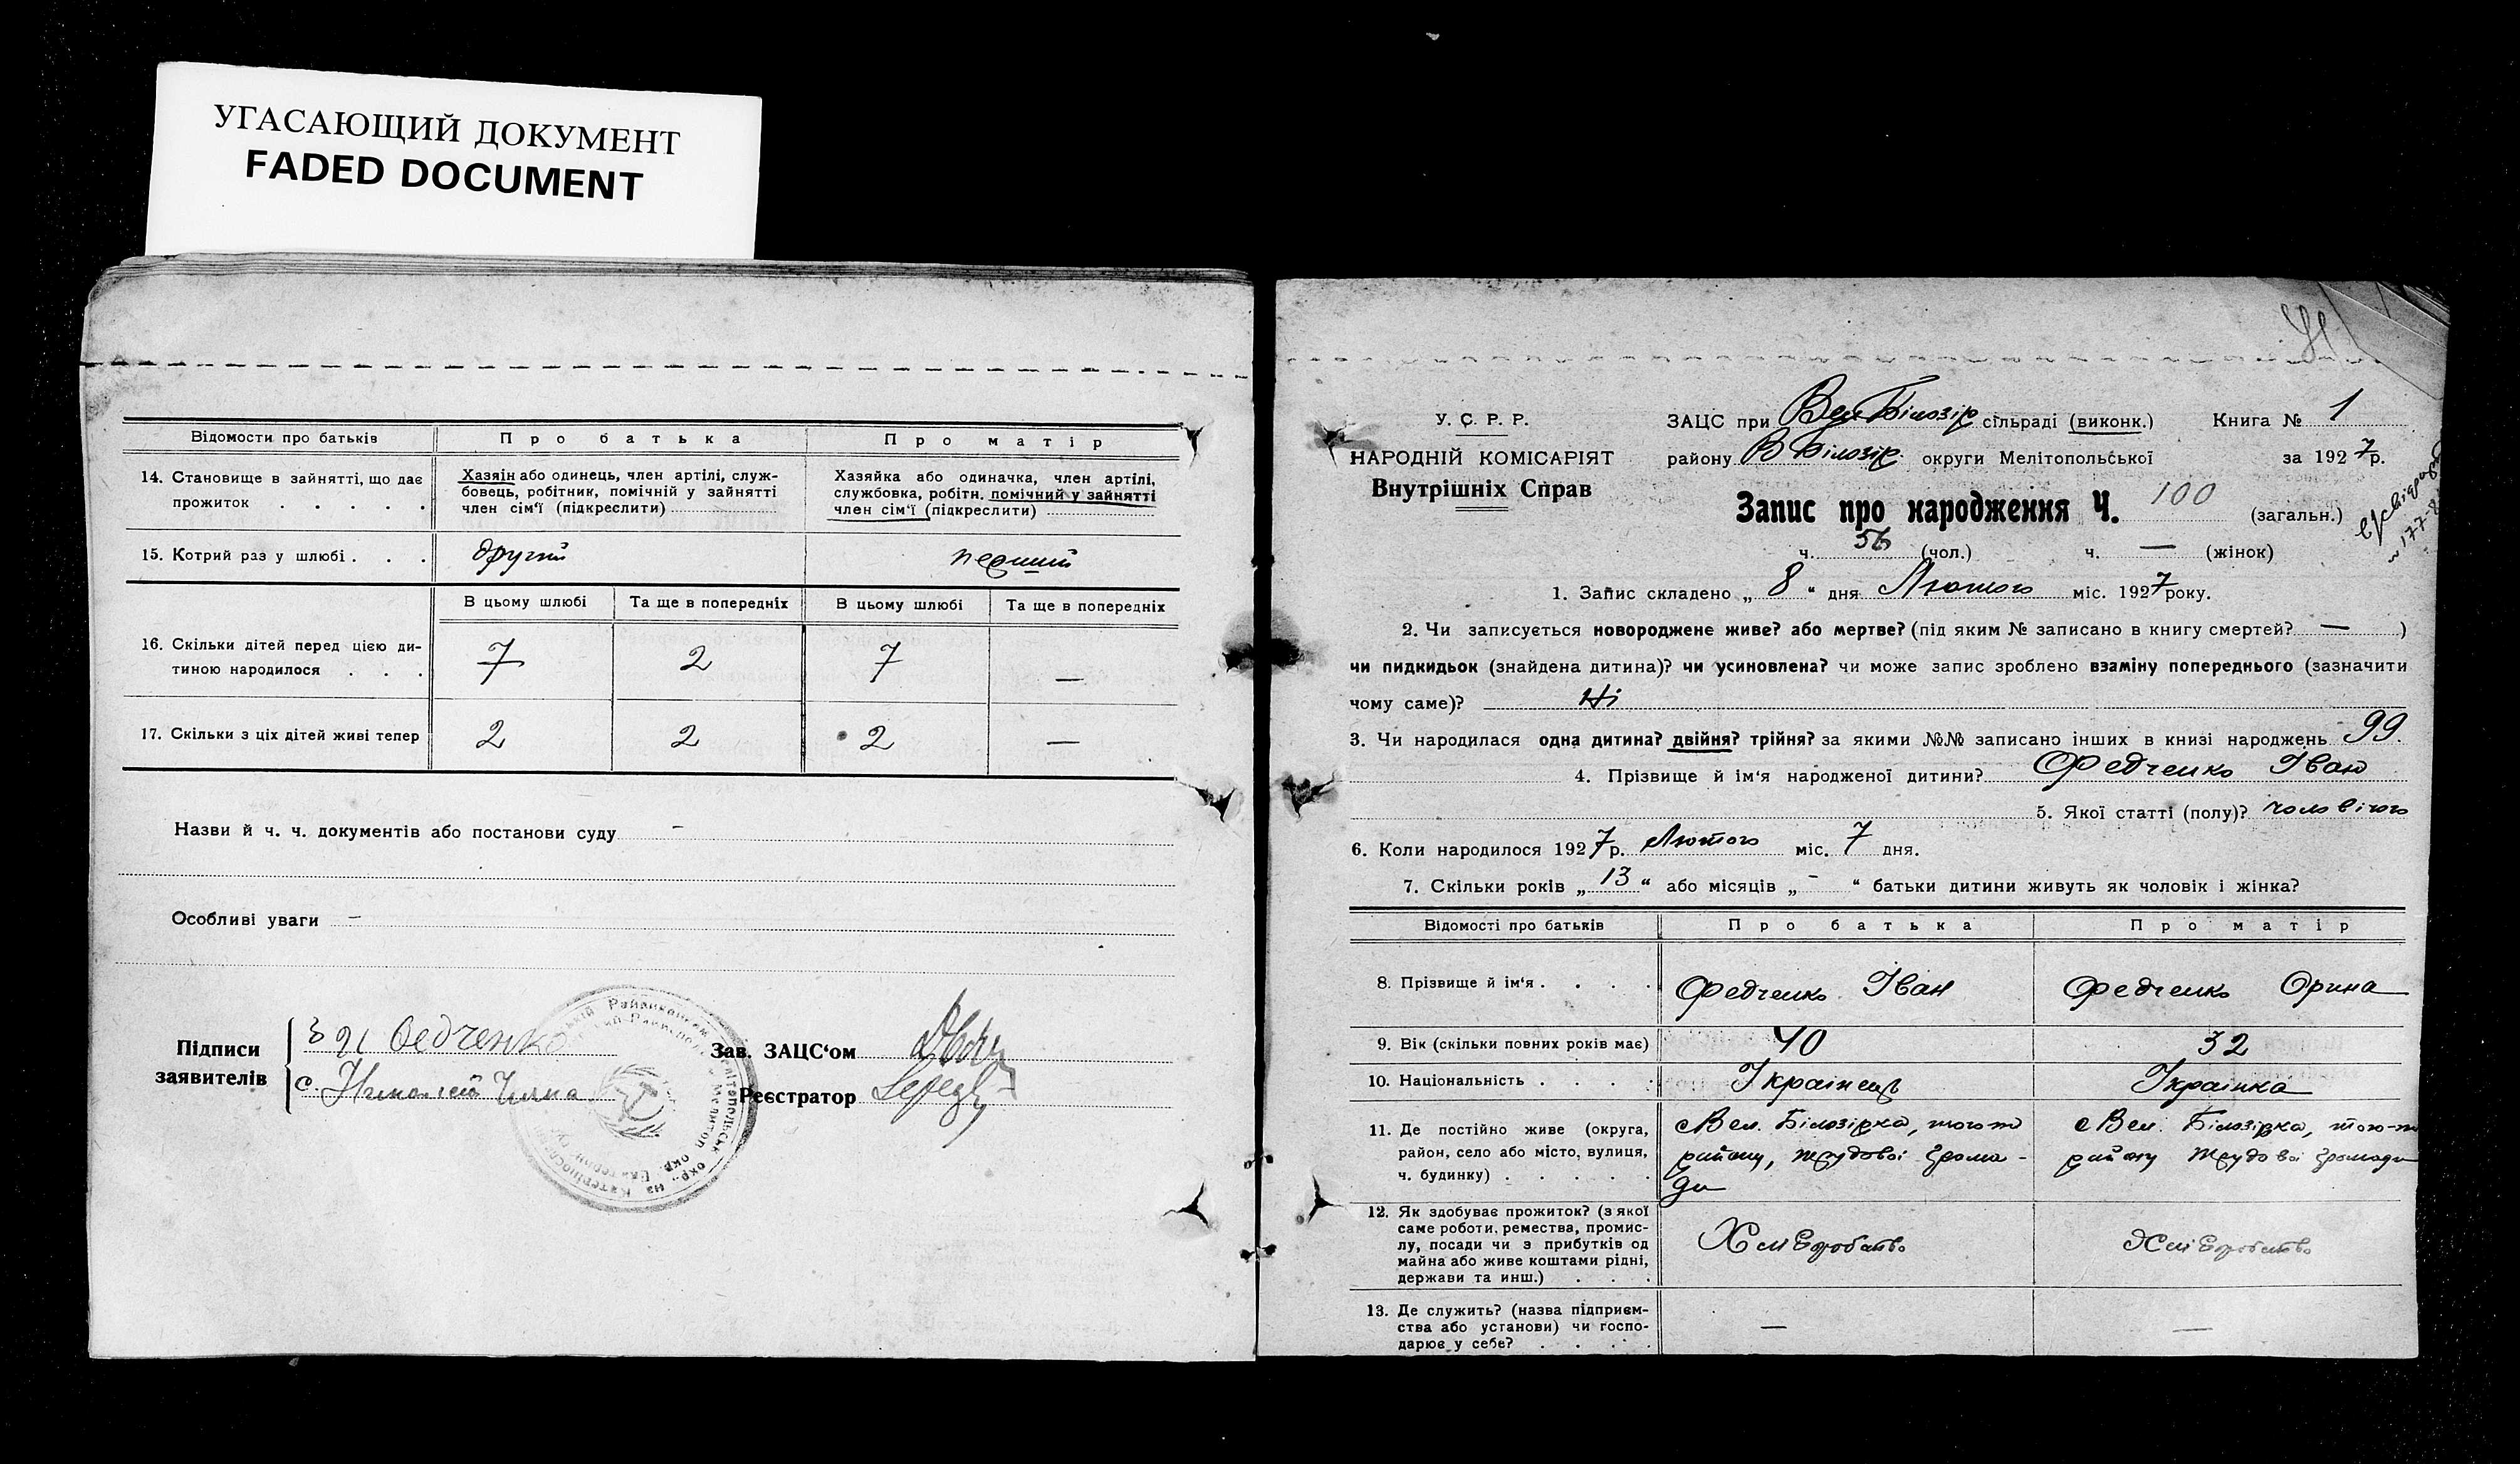 УГАСАЮЩИЙ ДОКУМЕНТ
FADED DOCUMENT
Відомости про батьків
Про батька
Про матір
14. Становище в зайнятті, що дає прожиток . . . . .
Хазяїн або одинець, член артілі, служ-
бовець, робітник, помічній у зайнятті
член сім‘ї (підкреслити)
Хазяйка або одиначка, член артілі,
службовка, робітн. помічний у зайнятті
член сім‘ї (підкреслити)
15. Котрий раз у шлюбі . . .
другий
перший
В цьому шлюбі
Та ще в попередніх
В цьому шлюбі
Та ще в попередніх
16. Скільки дітей перед цією ди-
тиною народилося . . .
7
2
7
—
17. Скільки з ціх дітей живі тепер
2
2
2
—
Назви й ч. ч. документів або постанови суду –
Особливі уваги –
Підписи
заявителів
Федченко
Зав. ЗАЦС‘ом
Реєстратор
У. С. Р. Р.
НАРОДНІЙ КОМІСАРІЯТ
Внутрішніх Справ
ЗАЦС при Вел Білозір сільраді (виконк.)
Книга № 1
району В Білозір. округи Мелітопольської
за 1927 р.
Запис про народження Ч. 100 (загальн.)
ч. 56 (чол.) ч. — (жінок)
1. Запис складено „ 8 “ дня Лютого міс. 1927 року.
2. Чи записується новороджене живе? або мертве? (під яким № записано в книгу смертей? — )
чи пидкидьок (знайдена дитина)? чи усиновлена? чи може запис зроблено взаміну попереднього (зазначити
чому саме)? Ні
3. Чи народилася одна дитина? двійня? трійня? за якими №№ записано інших в книзі народжень 99.
4. Прізвище й ім‘я народженої дитини? Федченко Іван
5. Якої статті (полу)? чоловічого
6. Коли народилося 1927 р. Лютого міс. 7 дня.
7. Скільки років „ 13 “ або місяців „ - “ батьки дитини живуть як чоловік і жінка?
Відомості про батьків
Про батька
Про матір
8. Прізвище й ім‘я . . . .
Федченко Іван
Федченко Орина
9. Вік (скільки повних років має)
40
32
10. Національність . . . .
Українець
Українка
11. Де постійно живе (округа,
район, село або місто, вулиця,
ч. будинку) . . . . .
с Вел. Білозірка, того-ж
району, трудової грома-
ди
с Вел. Білозірка, того-ж
району трудової громади
12. Як здобуває прожиток? (з якої
саме роботи, ремества, промис-
лу, посади чи з прибутків од
майна або живе коштами рідні,
держави та инш.) . . .
Хліборобство
Хліборобство
13. Де служить? (назва підприєм-
ства або установи) чи госпо-
дарює у себе? . . . .
—
—